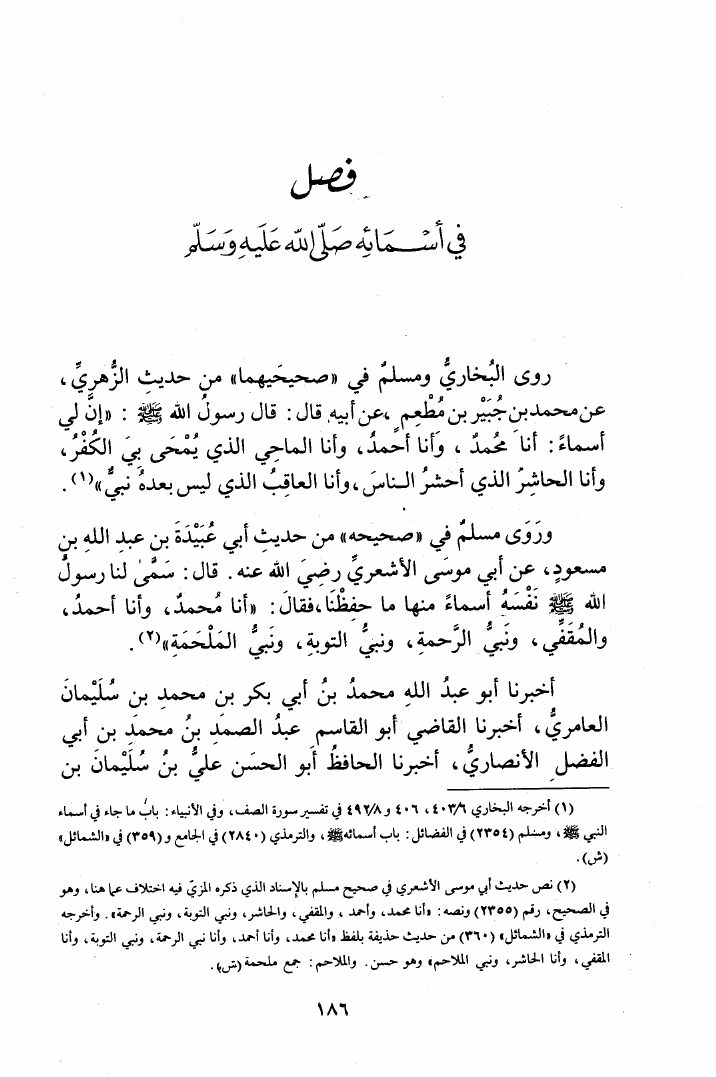 فصل
في أسمائه صلى الله عليه وسلم
روى البُخاريُّ ومسلمٌ في «صحيحَيهما» من حديثِ الزُّهريِّ،
عن محمد بن جُبَيْر بن مُطْعِمٍ، عن أبيه قال: قال رسولُ الله ﷺ: «إنَّ لي
أسماءً: أنا محمدٌ، وَأنا أحمدُ، وأنا الماحِي الذي يُمْحَى بِيَ الكُفْرُ،
وأنا الحاشِرُ الذي أحشرُ الناسَ، وأنا العاقِبُ الذي ليس بعدهُ نبيٌّ»(١).
ورَوَى مسلمٌ في «صحيحه» من حديثِ أبي عُبَيْدَةَ بنِ عبدِ اللهِ بنِ
مسعودٍ، عن أبي موسَى الأشعريِّ رضِيَ الله عنه. قال: سَمَّىٰ لنا رسولُ
الله ﷺ نَفْسَهُ أسماءً منها ما حفِظْنَا، فقالَ: «أنا مُحمدٌ، وأنا أحمدُ،
والمُقَفِّي، ونبيُّ الرَّحمةِ، ونبيُّ التوبةِ، ونَبيُّ المَلْحَمَةِ»(٢).
أخبرنا أبو عبدُ اللهِ محمدُ بنُ أبي بكر بن محمدِ بن سُلَيْمانَ
العامريُّ، أخبرنا القاضي أبو القاسم عبدُ الصمَدِ بنُ محمدِ بن أبي
الفضلِ الأنصاريُّ، أخبرنا الحافظُ أبو الحسَن عليُّ بنُ سُلَيْمانَ بن
(١) أخرجه البخاري ٤٠٣/٦، ٤٠٦ و٤٩٢/٨ في تفسير سورة الصف، وفي الأنبياء: باب ما جاء في أسماء
النبي ﷺ، ومسلم (٢٣٥٤) في الفضائل: باب أسمائه ﷺ، والترمذي (٢٨٤٠) في الجامع و(٣٥٩) في «الشمائل»
(ش).
(٢) نص حديث أبي موسى الأشعري في صحيح مسلم بالإسناد الذي ذكره المزيّ فيه اختلاف عما هنا، وهو
في الصحيح، رقم (٢٣٥٥) ونصه: «أنا محمد، وأحمد، والمقفي، والحاشر، ونبي التوبة، ونبي الرحمة». وأخرجه
الترمذي في «الشمائل» (٣٦٠) من حديث حذيفة بلفظ «أنا محمد، وأنا أحمد، وأنا نبي الرحمة، ونبي التوبة، وأنا
المقفي، وأنا الحاشر، ونبي الملاحم» وهو حسن. والملاحم: جمع ملحمة (ش).
١٨٦